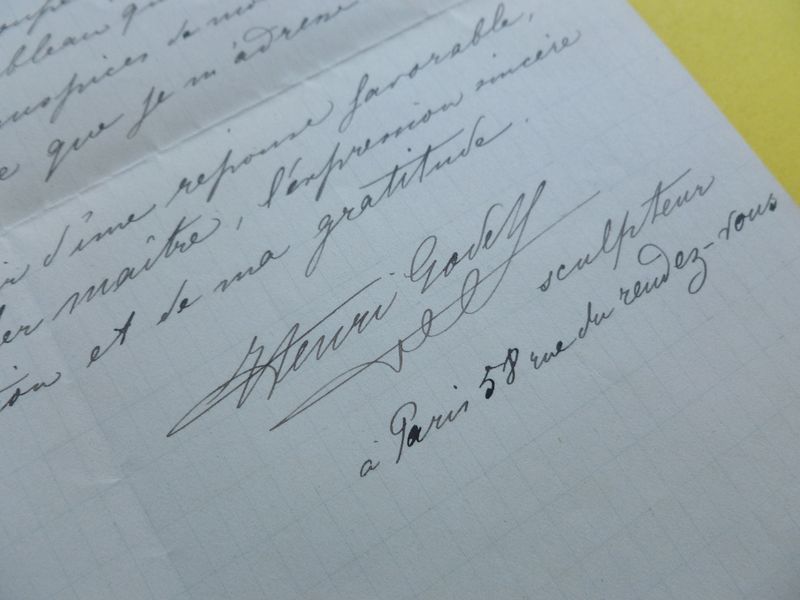 bleau qu
auspices de mo
e que je m'adresse
ir d'une réponse favorable,
her maître, l'expression sincère
tion et de ma gratitude.
Henri Godet
sculpteur
à Paris 58 rue du rendez-vous